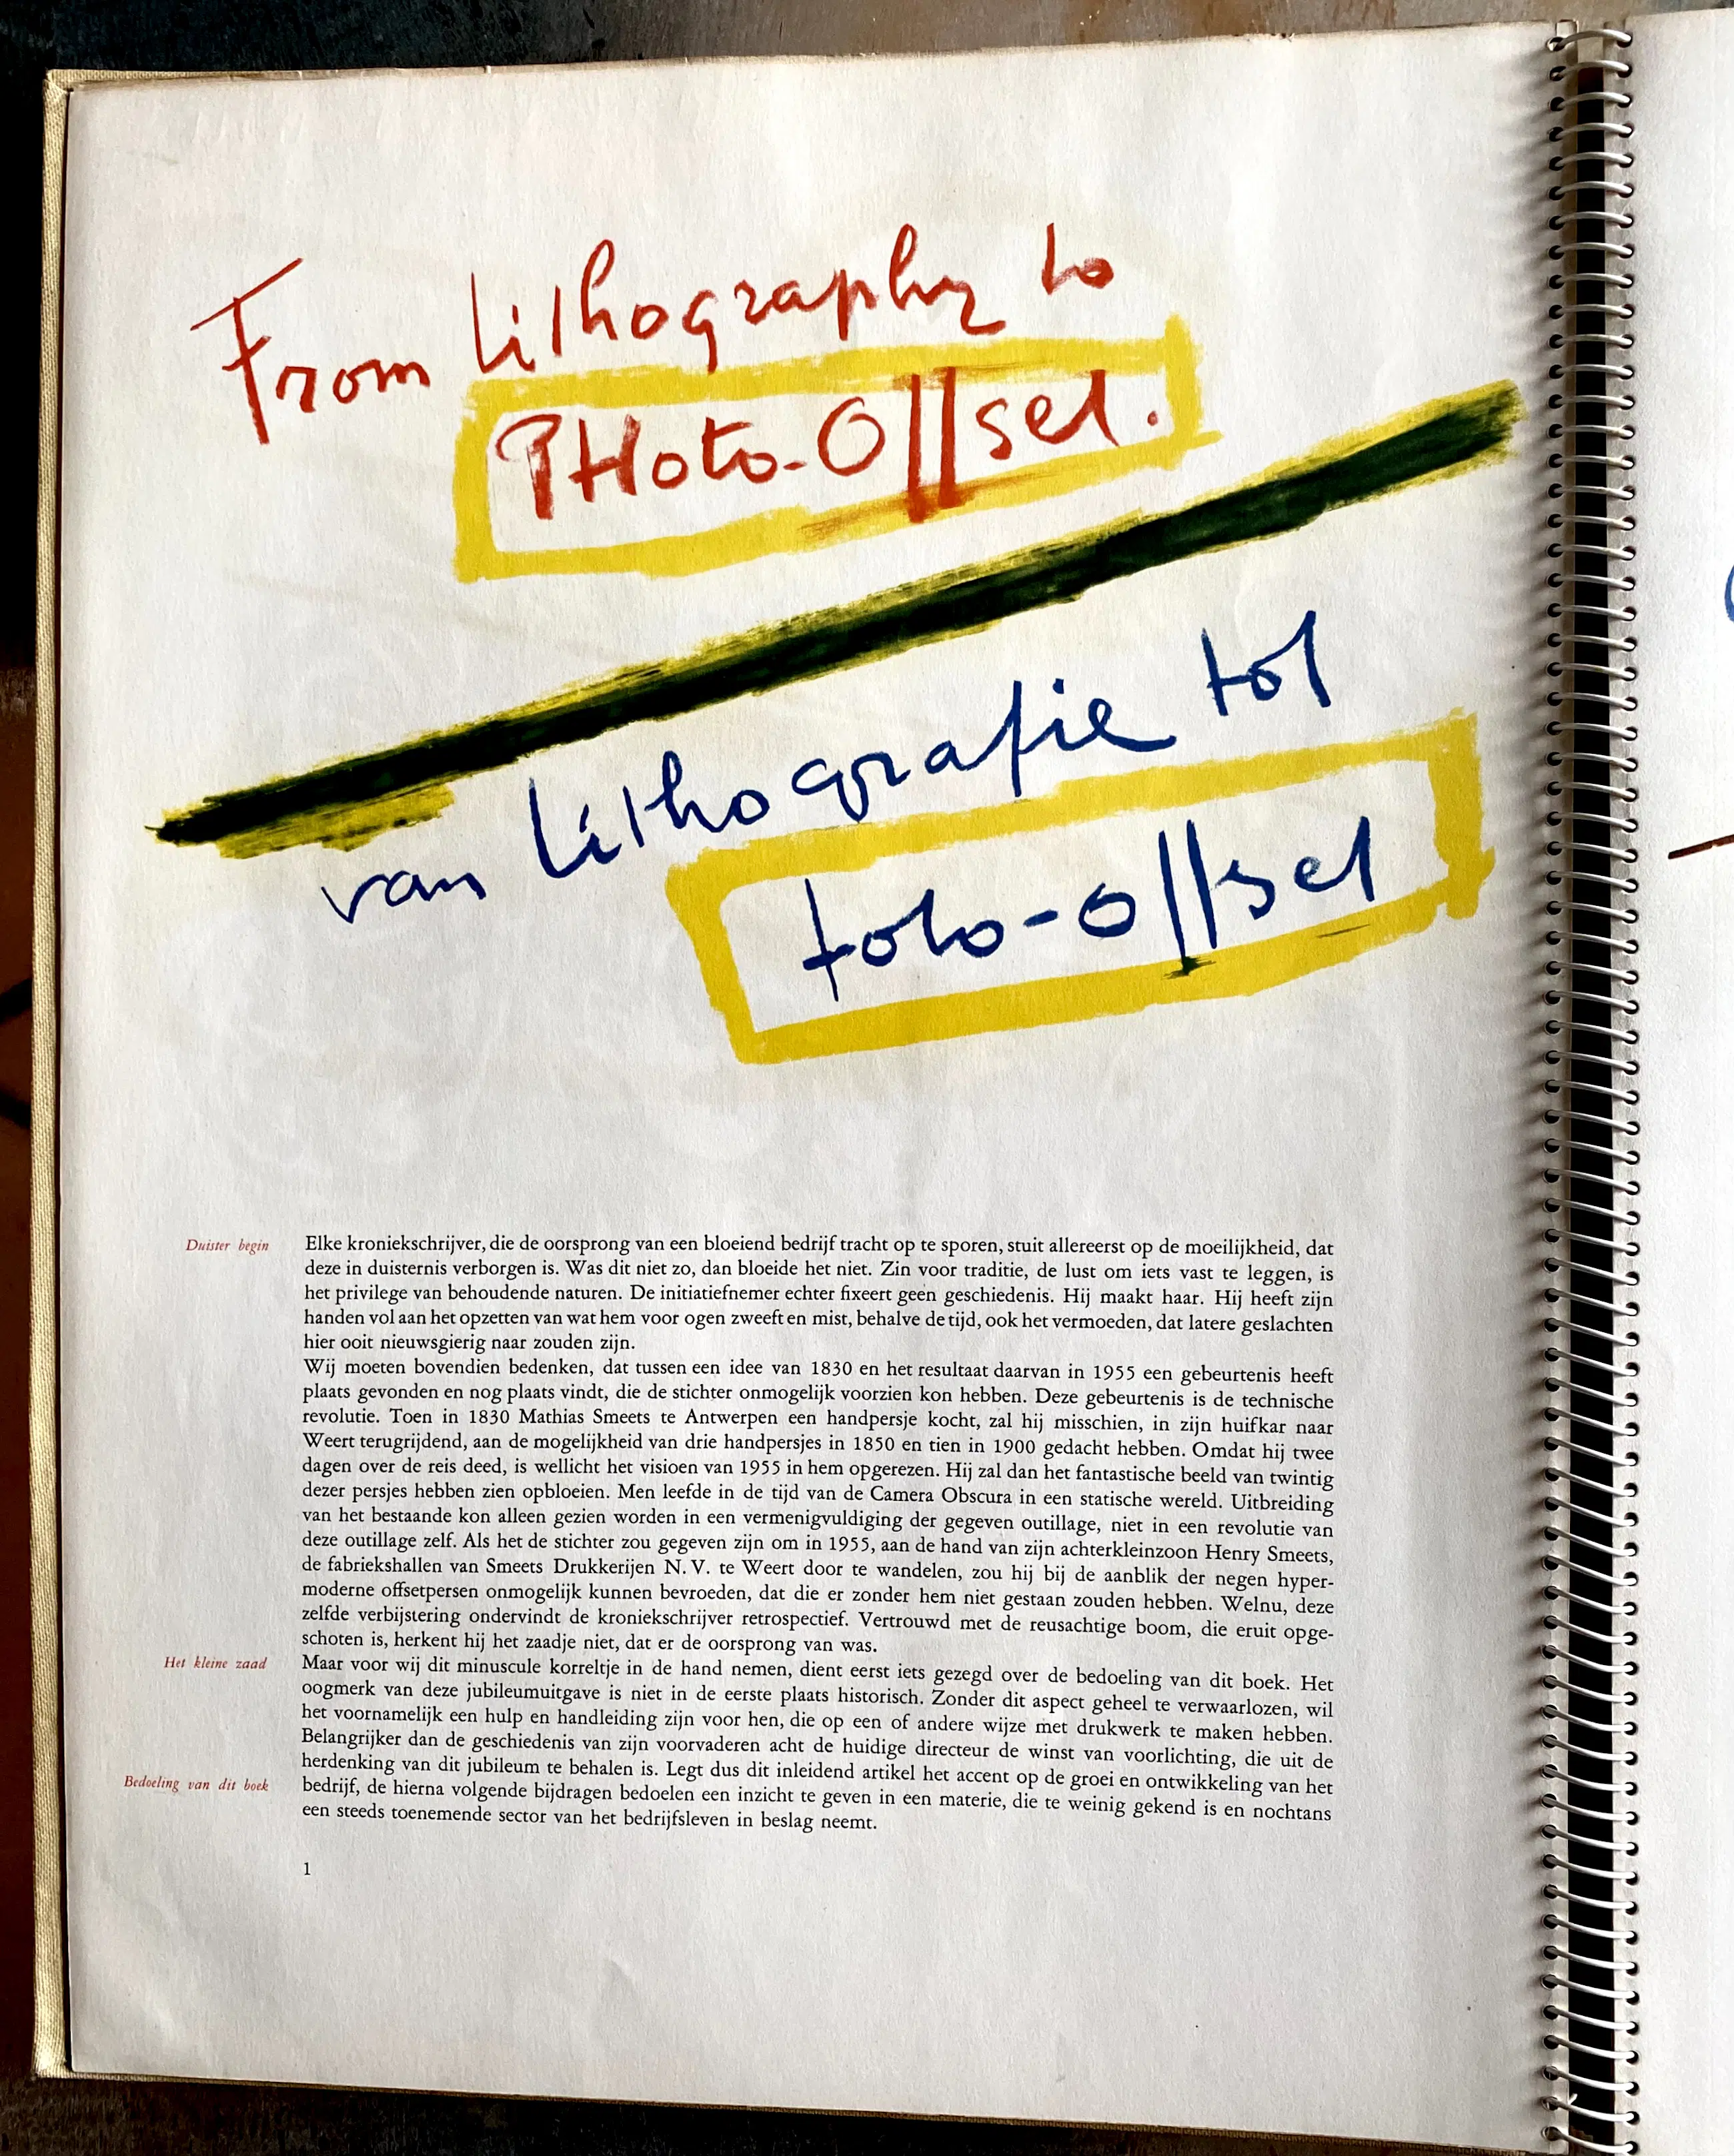 From Lithography to
PHoto-Offset.
van Lithografie tot
foto-offset
Duister begin
Elke kroniekschrijver, die de oorsprong van een bloeiend bedrijf tracht op te sporen, stuit allereerst op de moeilijkheid, dat
deze in duisternis verborgen is. Was dit niet zo, dan bloeide het niet. Zin voor traditie, de lust om iets vast te leggen, is
het privilege van behoudende naturen. De initiatiefnemer echter fixeert geen geschiedenis. Hij maakt haar. Hij heeft zijn
handen vol aan het opzetten van wat hem voor ogen zweeft en mist, behalve de tijd, ook het vermoeden, dat latere geslachten
hier ooit nieuwsgierig naar zouden zijn.
Wij moeten bovendien bedenken, dat tussen een idee van 1830 en het resultaat daarvan in 1955 een gebeurtenis heeft
plaats gevonden en nog plaats vindt, die de stichter onmogelijk voorzien kon hebben. Deze gebeurtenis is de technische
revolutie. Toen in 1830 Mathias Smeets te Antwerpen een handpersje kocht, zal hij misschien, in zijn huifkar naar
Weert terugrijdend, aan de mogelijkheid van drie handpersjes in 1850 en tien in 1900 gedacht hebben. Omdat hij twee
dagen over de reis deed, is wellicht het visioen van 1955 in hem opgerezen. Hij zal dan het fantastische beeld van twintig
dezer persjes hebben zien opbloeien. Men leefde in de tijd van de Camera Obscura in een statische wereld. Uitbreiding
van het bestaande kon alleen gezien worden in een vermenigvuldiging der gegeven outillage, niet in een revolutie van
deze outillage zelf. Als het de stichter zou gegeven zijn om in 1955, aan de hand van zijn achterkleinzoon Henry Smeets,
de fabriekshallen van Smeets Drukkerijen N.V. te Weert door te wandelen, zou hij bij de aanblik der negen hyper-
moderne offsetpersen onmogelijk kunnen bevroeden, dat die er zonder hem niet gestaan zouden hebben. Welnu, deze
zelfde verbijstering ondervindt de kroniekschrijver retrospectief. Vertrouwd met de reusachtige boom, die eruit opge-
schoten is, herkent hij het zaadje niet, dat er de oorsprong van was.
Het kleine zaad
Maar voor wij dit minuscule korreltje in de hand nemen, dient eerst iets gezegd over de bedoeling van dit boek. Het
oogmerk van deze jubileumuitgave is niet in de eerste plaats historisch. Zonder dit aspect geheel te verwaarlozen, wil
het voornamelijk een hulp en handleiding zijn voor hen, die op een of andere wijze met drukwerk te maken hebben.
Belangrijker dan de geschiedenis van zijn voorvaderen acht de huidige directeur de winst van voorlichting, die uit de
herdenking van dit jubileum te behalen is. Legt dus dit inleidend artikel het accent op de groei en ontwikkeling van het
Bedoeling van dit boek
bedrijf, de hierna volgende bijdragen bedoelen een inzicht te geven in een materie, die te weinig gekend is en nochtans
een steeds toenemende sector van het bedrijfsleven in beslag neemt.
1